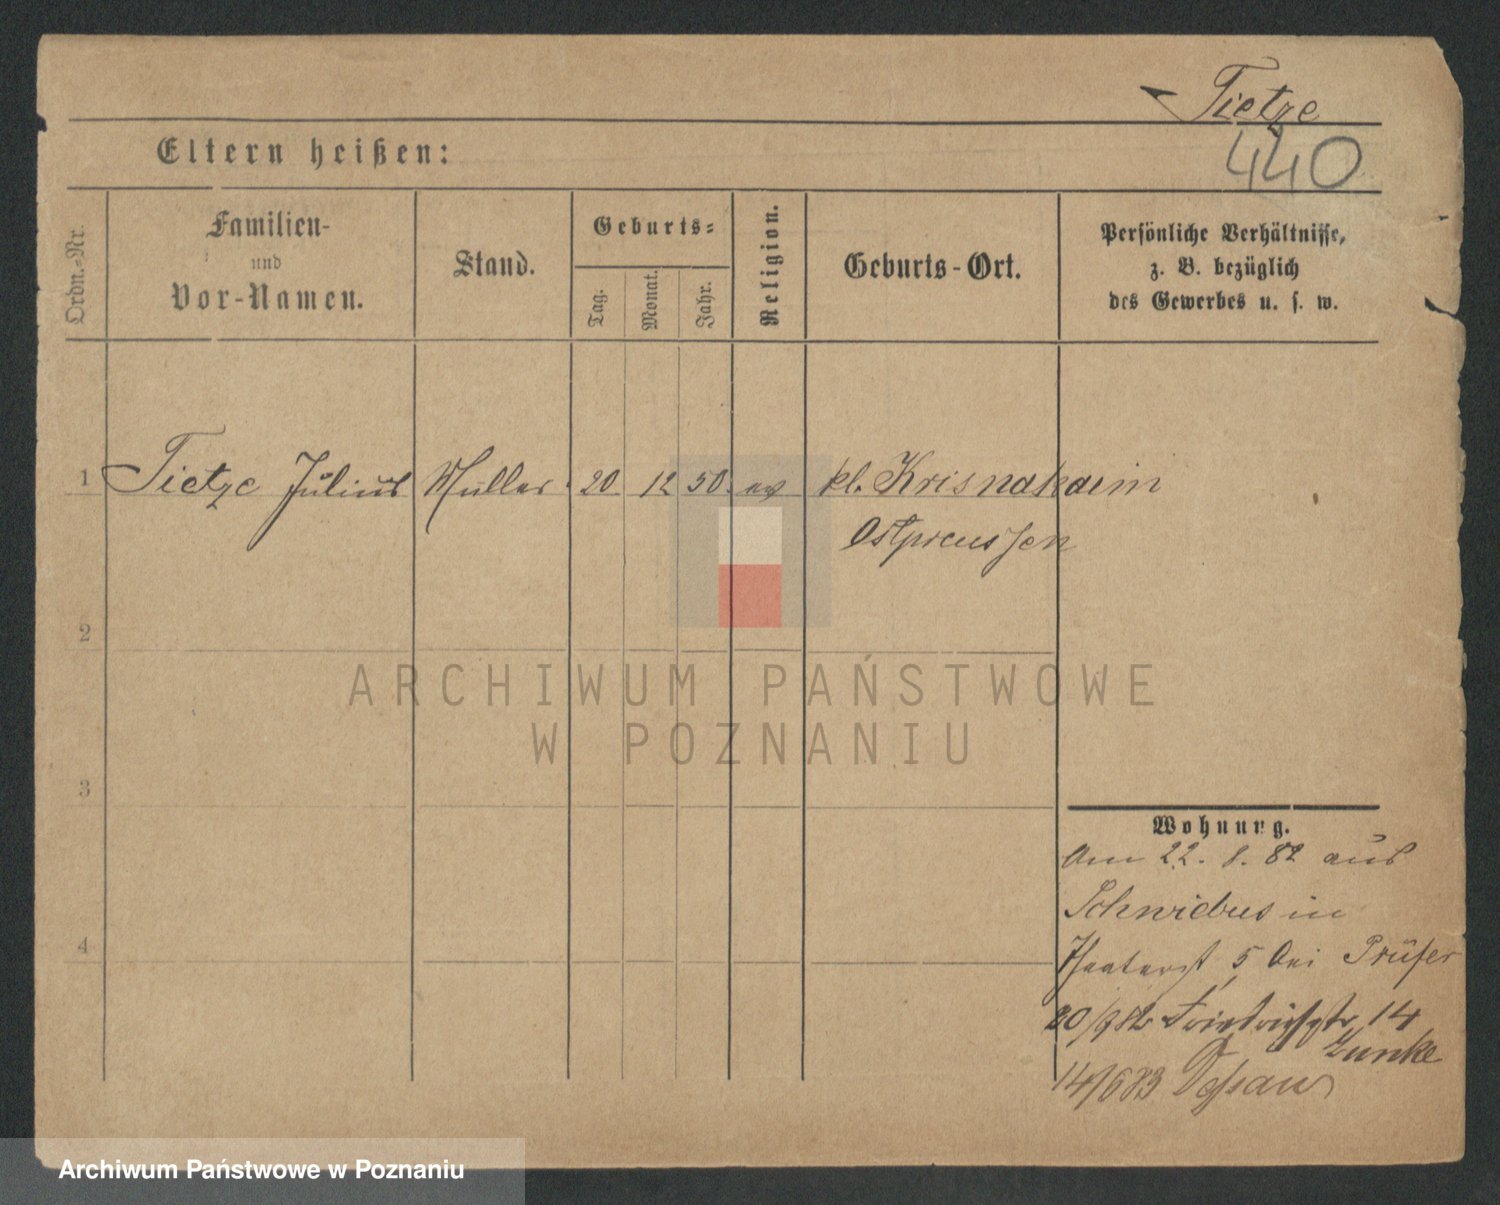 Tietze
440
Eltern heißen:
Ordn.-Nr.
Familien-
und
Vor-Namen.
Stand.
Geburts-
Tag.
Monat.
Jahr.
Religion.
Geburts-Ort.
Persönliche Verhältnisse,
z. B. bezüglich
des Gewerbes u. s. w.
1 Tietze Julius Müller 20 12 50 ev kl. Krisnahaim
Ostpreussen
2
ARCHIWUM PAŃSTWOWE
W POZNANIU
3
Wohnung.
Am 22. 8. 82 aus
Schwiebus in
5 bei Prüfer
20/9 82 Friedrichstr. 14
Zunke
14/6 83 Dessau
4
Archiwum Państwowe w Poznaniu